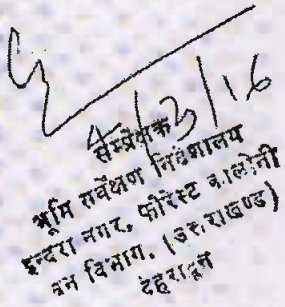 4/3/16
सर्वेक्षक
भूमि सर्वेक्षण निदेशालय
इन्दिरा नगर, फॉरेस्ट कालोनी
वन विभाग, (उत्तराखण्ड)
देहरादून